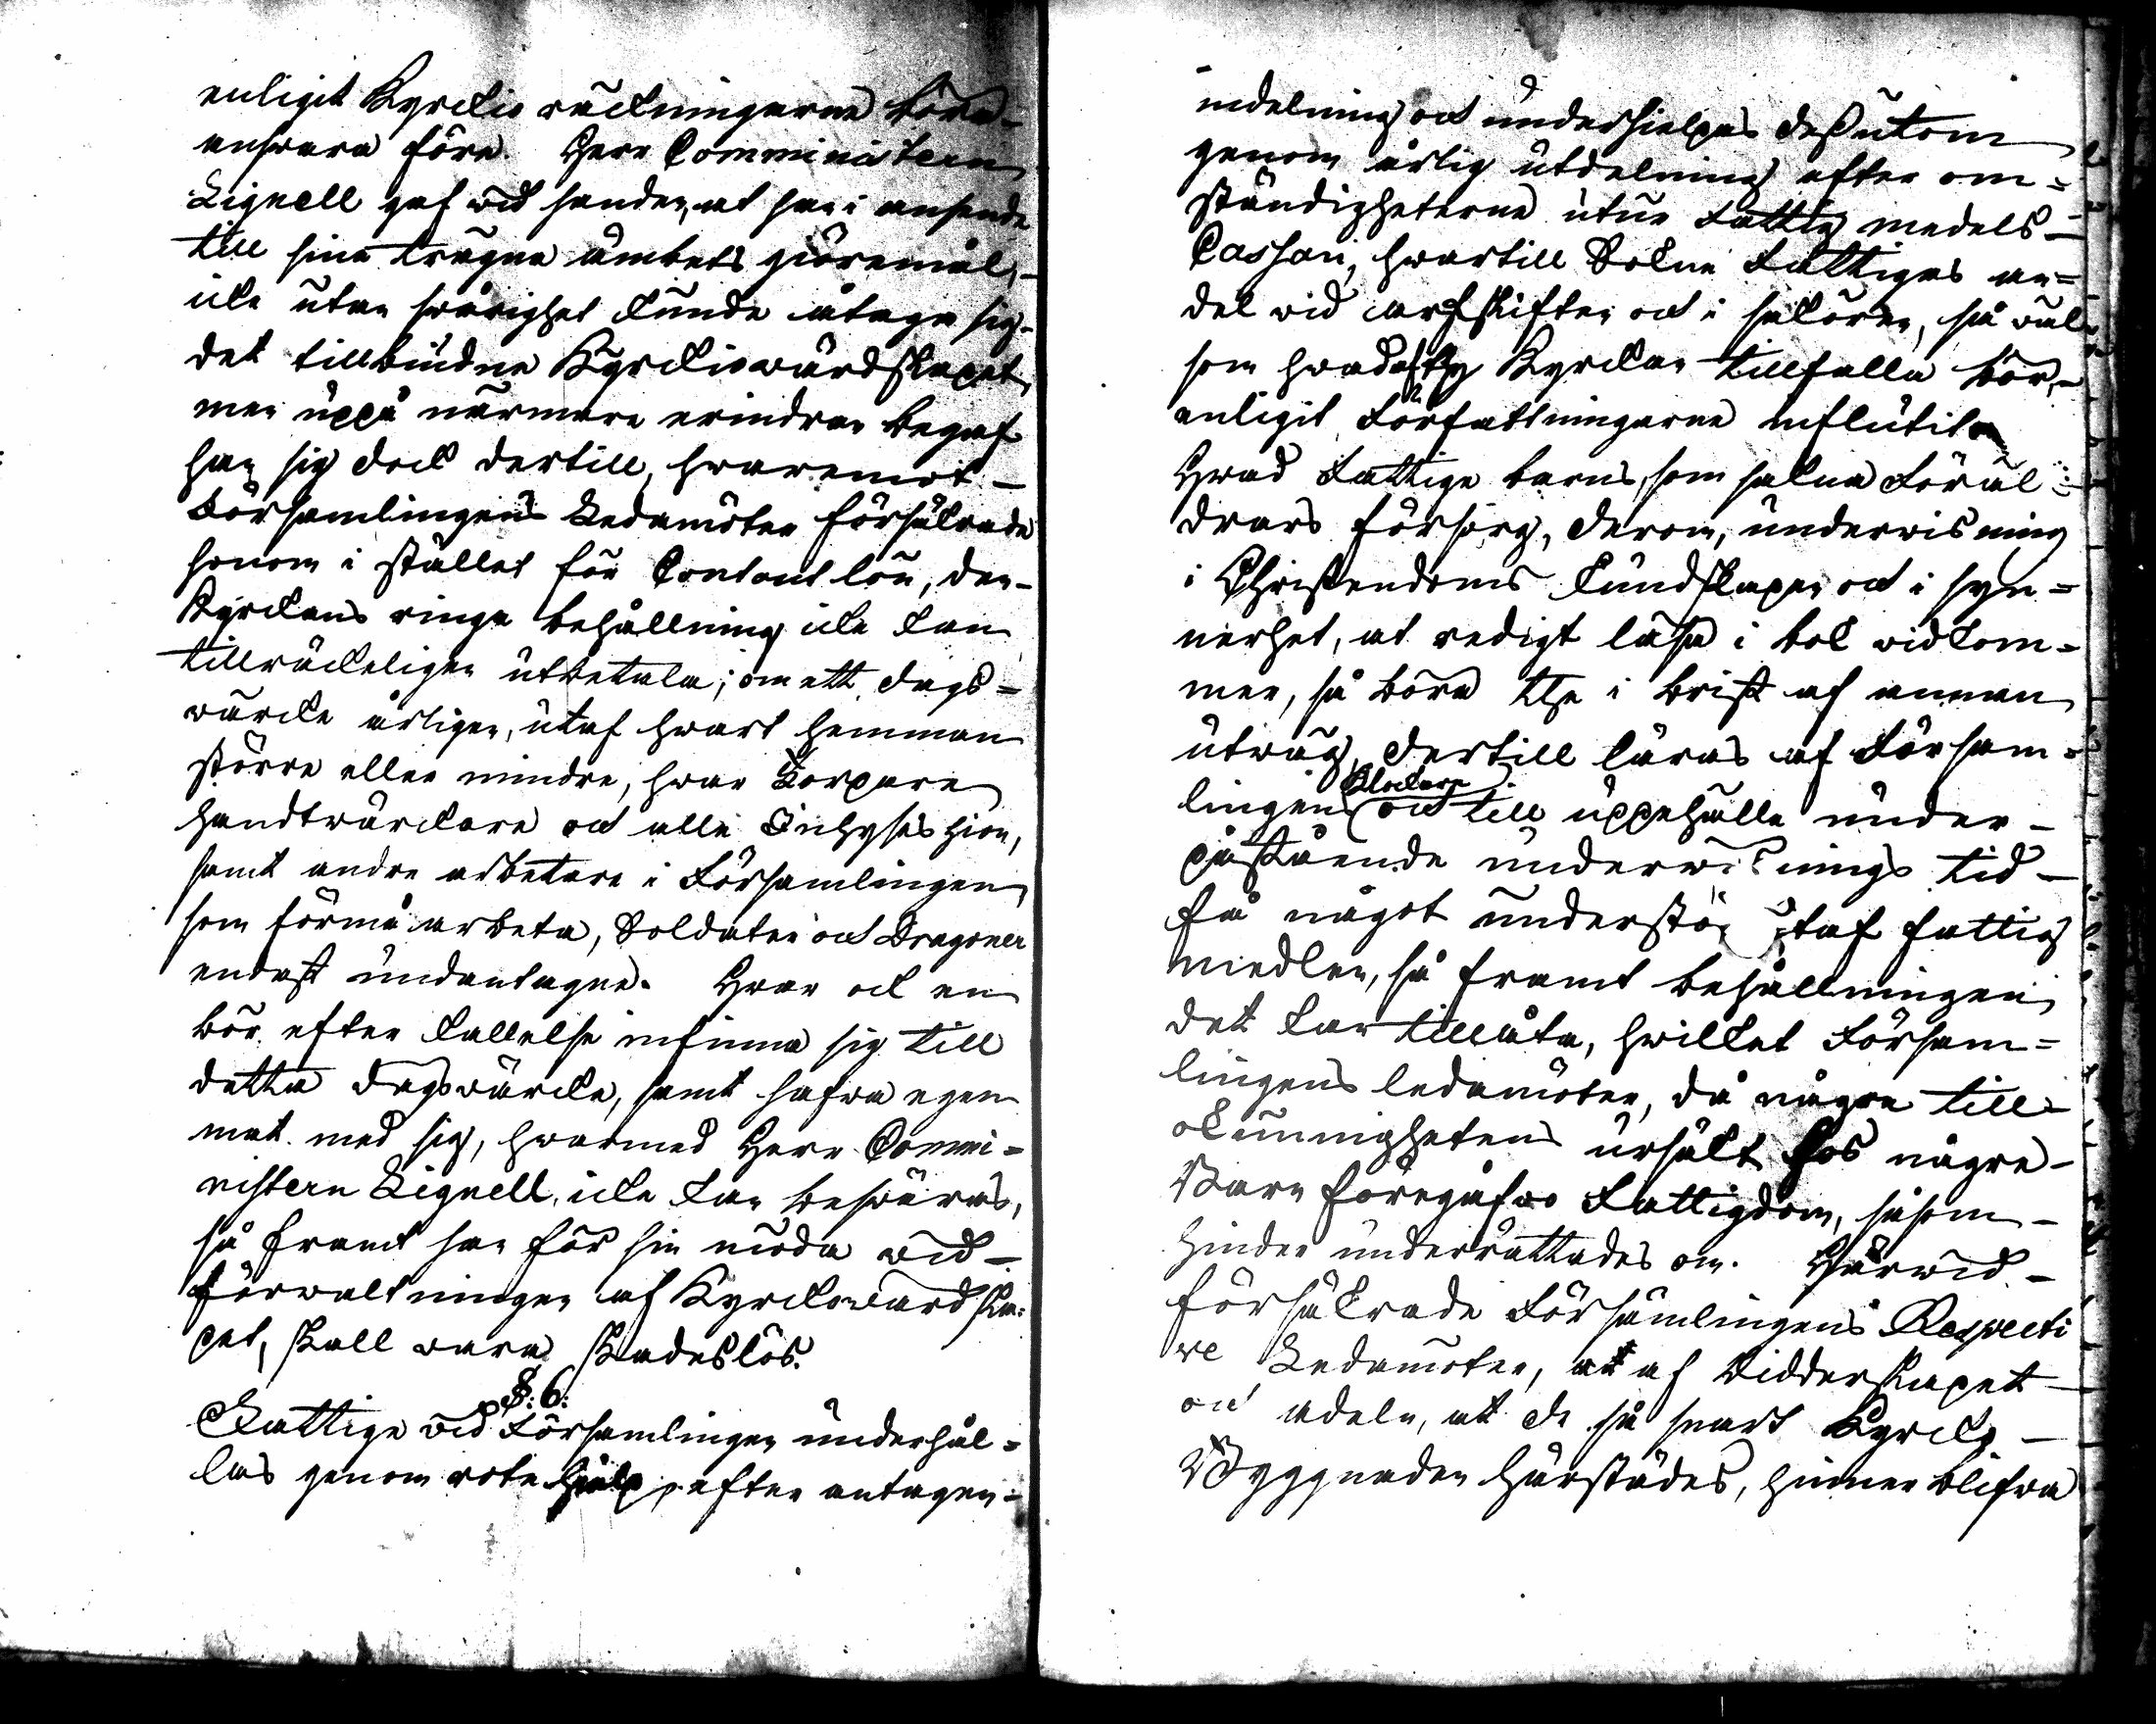 enligit Kyrckio räckningarne böra
answara före. Herr Comministern
Lignell gaf wid handen, at han i anseende
till sina trägna ämbets giöremål,
icke utan swårighet kunde åtaga sig
det tillbudna Kyrckiowärdskapet,
men uppå närmare erindran begaf
han sig dock dertill, hwaremot
Församlingens Ledamöter försäkrade
honom i stället för Contant lön, den
Kyrckans ringa behållning icke kan
tillräckeligen utbetala; om ett dags=
wärcke årligen, utaf hwart hemman
större eller mindre, hwar Torpare
handtwärckare och alla Inhyses hion,
samt andre arbetare i Församlingen,
som förmå arbeta, Soldater och Dragoner
endast undantagne. Hwar och en
bör efter kallelse infinna sig till
detta dagswärcke, samt hafwa egen
mat med sig, hwarmed Herr Commi=
nistern Lignell icke kan beswäras,
så framt han för sin möda wid
förwaltningen af Kyrckowärdska=
pet, skall wara skadeslös.
§: 6:
Fattige wid Församlingen underhål=
las genom rote hielp efter antagen
indelning och underhielpes dessutom
genom årlig utdelning efter om=
ständigheterne utur Fattig medels
Cassan, hwartill Sokne Fattigas an=
del wid arfskiften och i saköron, så wäl
som hwad Kyrckan tillfalla bör,
enligit Författningarne influtit
Hwad Fattige barns, som sakna Föräl=
drars försorg, derom, underwisning
i Christendoms kundskapen och i syn=
nerhet, at redigt läsa i bok widkom=
mer, så böra the i brist af annan
utwäg, dertill läras af Försam=
lingens Klockare och till uppehälle under
påstående underwisnings tid
få något understöd utaf fattig
medlen, så framt behållningen
det kan tillåta, hwilket Försam=
lingens ledamöter, då några till
okunnighetens ursäkt hos några
Barn föregåfwo Fattigdom, såsom
hinder underrättades om. Härwid
försäkrade Församlingens Respecti
ve Ledamöter, at af Ridderskapet
och adeln, at de så snart Kyrcko
Byggnaden härstädes, hinner blifwa